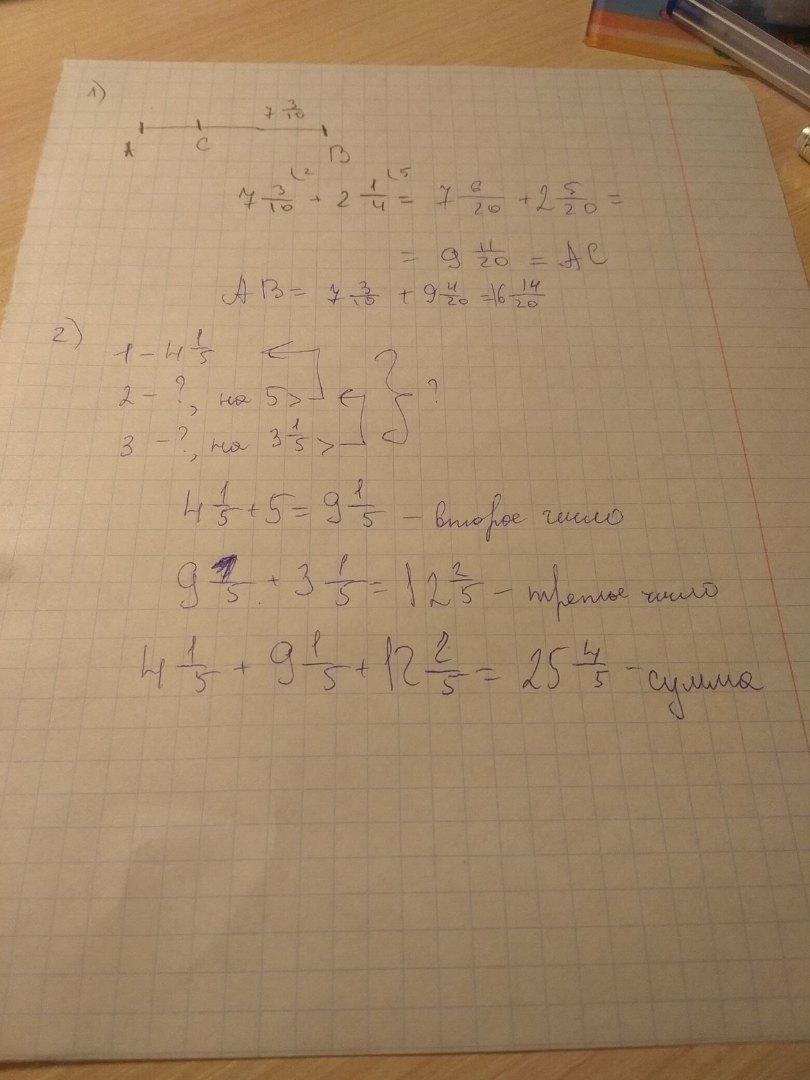 1)
7 3/10
A C B
7 3/10 (2 + 2 1/4 (5 = 7 6/20 + 2 5/20 =
= 9 11/20 = AC
AB = 7 3/10 + 9 11/20 = 16 14/20
2)
1 - 4 1/5
2 - ?, на 5 > ?
3 - ?, на 3 1/5 >
4 1/5 + 5 = 9 1/5 - второе число
9 1/5 + 3 1/5 = 12 2/5 - третье число
4 1/5 + 9 1/5 + 12 2/5 = 25 4/5 - сумма